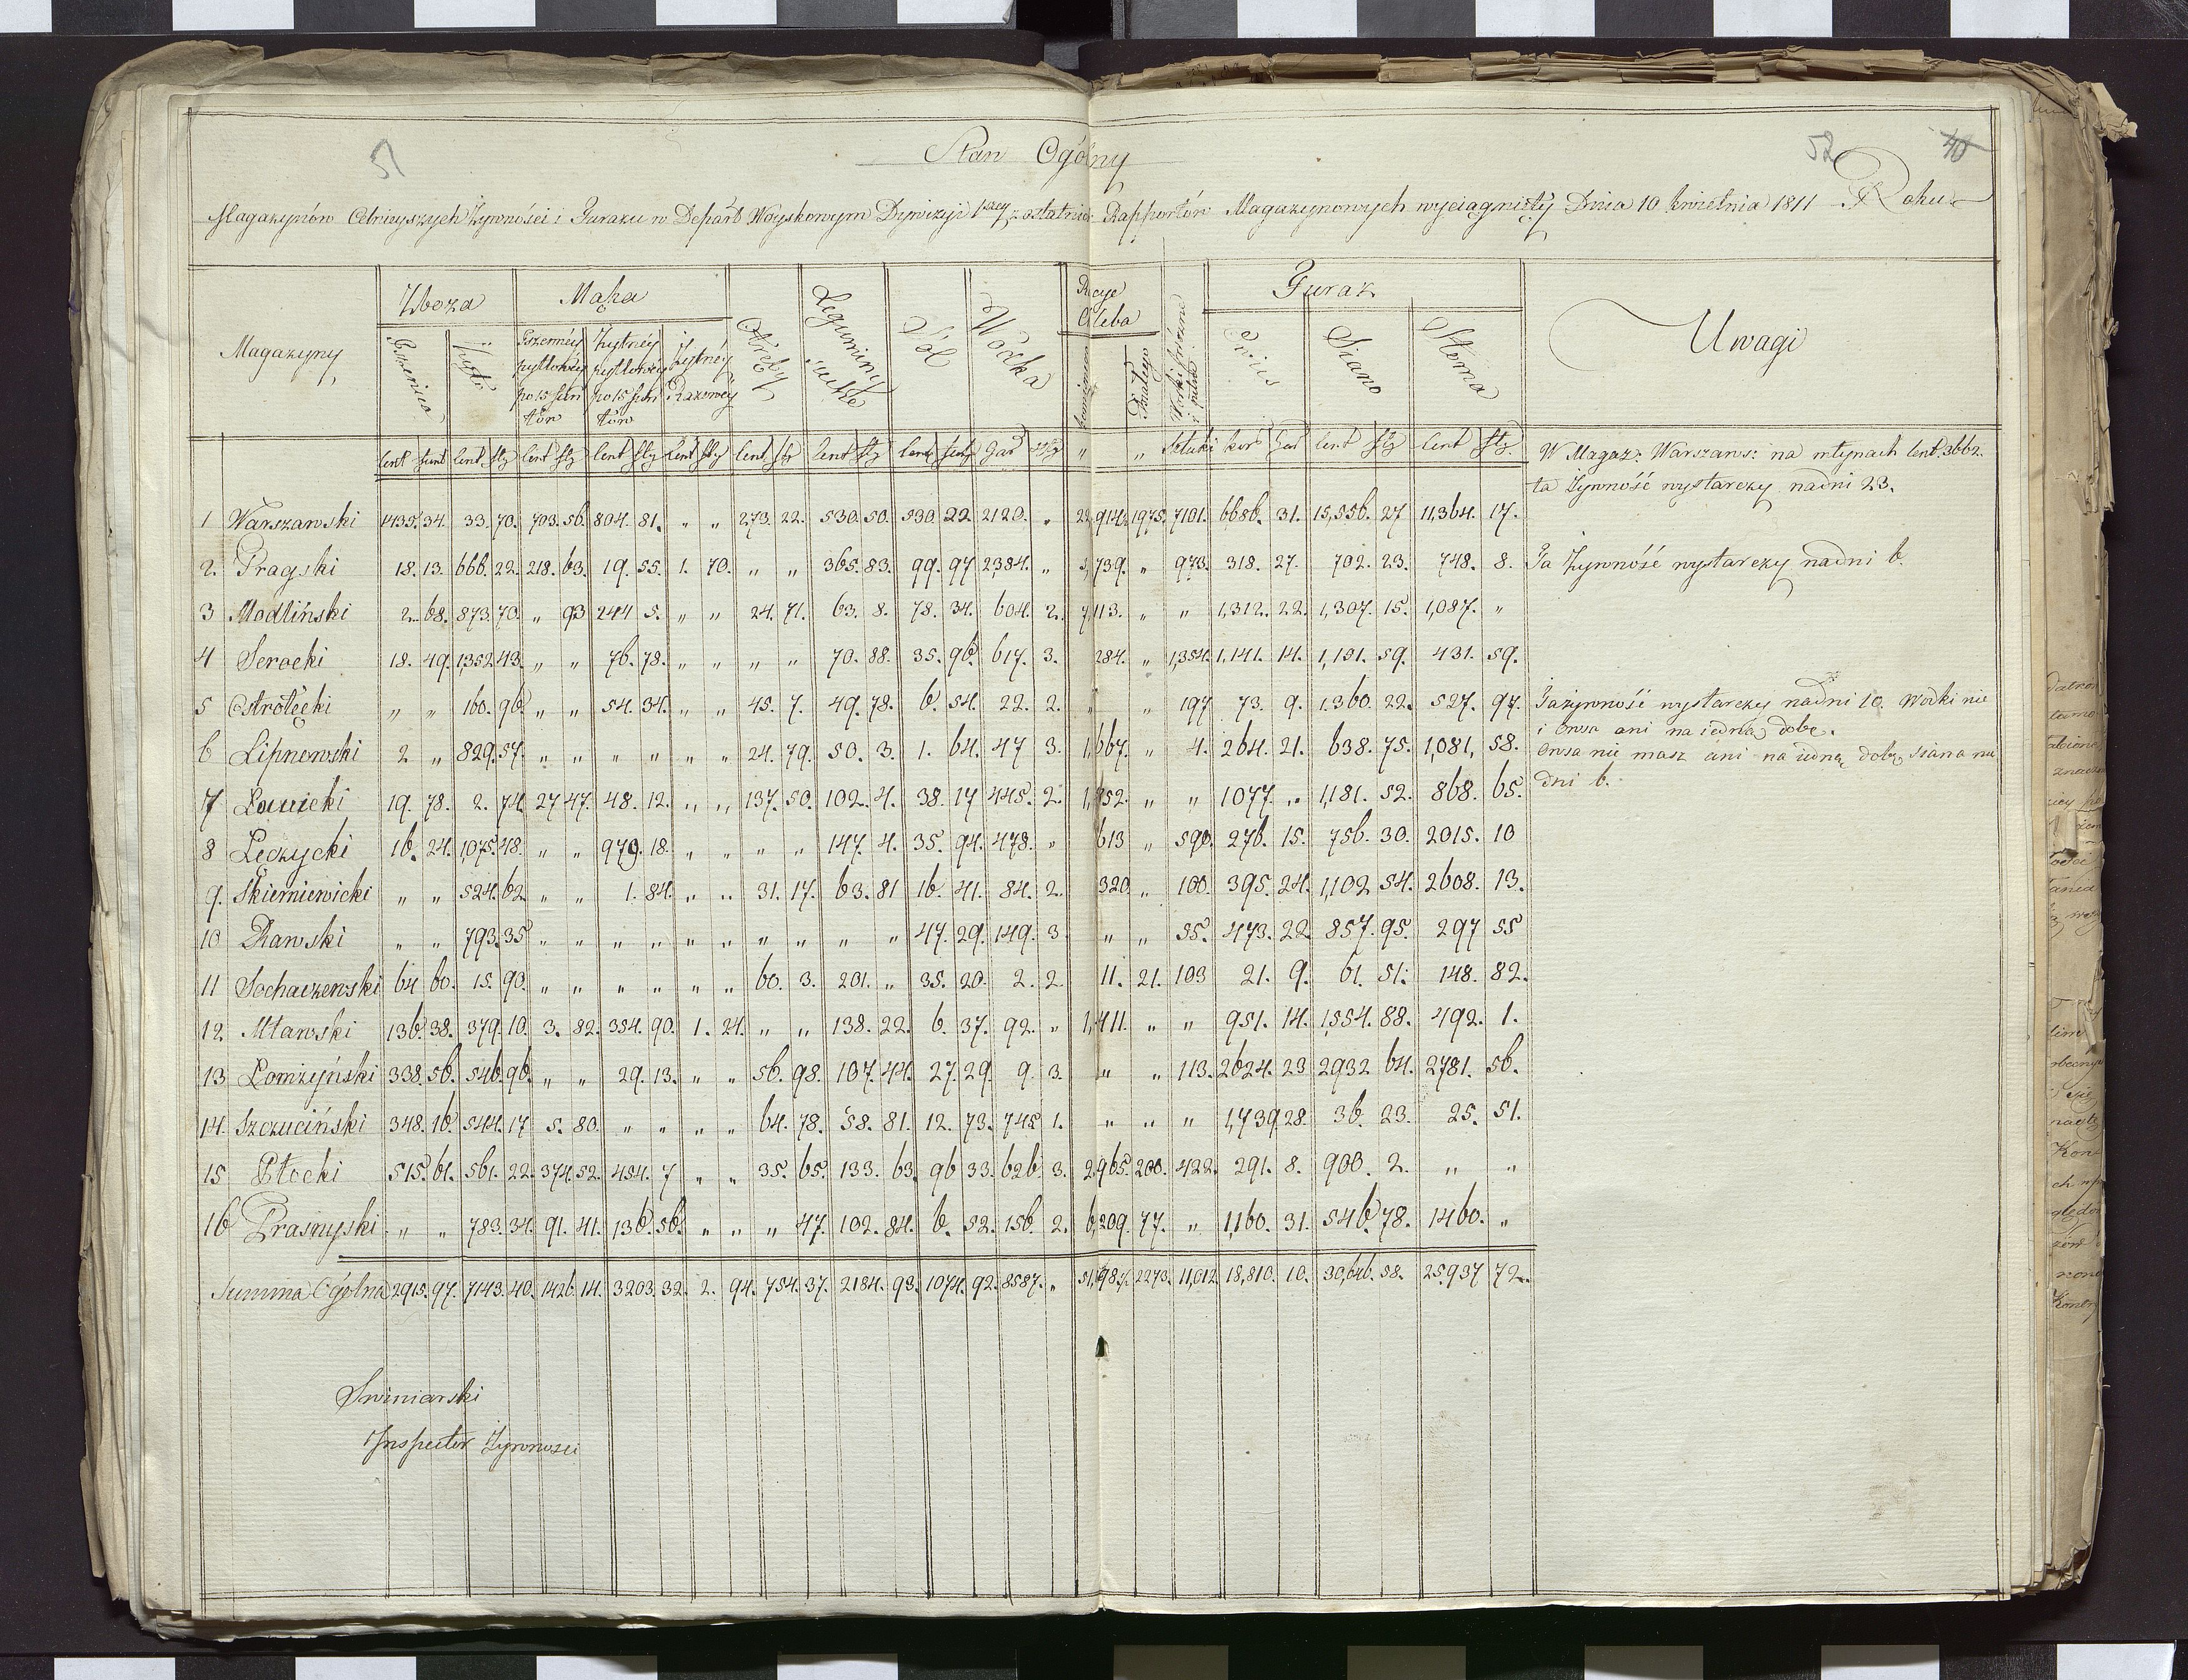 51
52
40
Stan Ogólny
Magazynów Żywności i Furazu w Depart Woyskowym Dywizyi 1szey z ostatnich Rapportów Magazynowych wyciągnięty Dnia 10 kwietnia 1811 Roku
Magazyny | Zboza | Mąka | Legumina | Sól | Wodka | Racye Chleba | Furaz | Uwagi
Pszenica | Zyto | Pszenney pytlowey po 15 funtów | Zytney pytlowey po 15 funtów | Zytney Razowey | Białego | Owies | Siano | Słoma
Cent funt Cent fty Cent fty Cent fty Cent fty Cent fty Cent fty Cent funt Gar „ „ Sztuki Kor Gar Cent fty Cent fty
W Magaz: Warszaws: na młynach Cent. 3662.
ta Zywność wystarczy nadni 23.
1 Warszawski 1435. 34. 33. 70. 703. 56. 804. 81. „ „ 273. 22. 530. 50. 530. 22 2120. „ 22,914. 1975. 7101. 6686. 31. 15,556. 27 11,364. 17.
2. Pragski 18. 13. 666. 22. 218. 63. 19. 55. 1. 70. „ „ 365. 83. 99. 97 2,384. „ 5,739. „ 973. 318. 27. 702. 23. 748. 8. Ta Zywność wystarczy nadni 6.
3 Modliński 2. 68. 873. 70. „ 93 244 5. „ „ 24. 71. 63. 8. 78. 34. 604. 2. 7,113. „ „ 1,312. 22. 1,307. 15. 1,087. „
4 Serocki 18. 49. 1352. 43. „ „ 76. 78. „ „ „ „ 70. 88. 35. 96. 617. 3. 284. „ 1,354. 1,141. 14. 1,191. 59. 431. 59.
5 Ostrołęcki „ „ 160. 96. „ „ 54. 34. „ „ 45. 7. 49. 78. 6. 54. 22. 2. „ „ 197 73. 9. 1.360. 22. 527. 97. Ta zywność wystarczy nadni 10. Wodki nie
i Owsa ani na iedną dobę.
6 Lipnowski 2 „ 829. 57. „ „ „ „ „ „ 24. 79. 50. 3. 1. 64. 47 3. 1,667. „ 4. 264. 21. 638. 75. 1,081, 58. Owsa nie masz ani na iedną dobę, siana na
dni 6.
7 Łowicki 19. 78. 2. 74. 27 47. 48. 12. „ „ 137. 50. 102. 4. 38. 17 445. 2. 1,952. „ „ 1077. „ 1,181. 52. 868. 65.
8 Łęczycki 16. 24. 1,075. 48. „ „ 979. 18. „ „ „ „ 147. 4. 35. 94. 478. „ 613 „ 590. 276. 15. 756. 30. 2015. 10
9. Skierniewicki „ „ 524. 62. „ „ 1. 84. „ „ 31. 17. 63. 81 16. 41. 84. 2. 320. „ 100. 395. 24. 1,102 54. 2608. 13.
10 Rawski „ „ 793. 35 „ „ „ „ „ „ „ „ „ „ 47. 29. 149. 3. „ „ 55. 473. 22. 857. 95. 297 55
11 Sochaczewski 64 60. 15. 90. „ „ „ „ „ „ 60. 3. 201. „ 35. 20. 2. 2. 11. 21. 103 21. 9. 61. 51. 148. 82.
12. Mławski 136. 38. 379. 10. 3. 82. 354. 90. 1. 24. „ „ 138. 22. 6. 37. 92. „ 1,411. „ „ 951. 14. 1,554. 88. 492. 1.
13 Łomzyński 338. 56. 546. 96. „ „ 29. 13. „ „ 56. 98. 107. 44. 27. 29. 9. 3. „ „ 113. 2624. 23 2932 64. 2781. 56.
14. Szczuciński 348. 16. 544. 17 5. 80. „ „ „ „ 64. 78. 58. 81. 12. 73. 745 1. „ „ „ 1,739. 28. 36. 23. 25. 51.
15 Płocki 515. 61. 561. 22. 374. 52. 454. 7 „ „ 35. 65. 133. 63. 96 33. 626. 3. 2,965. 200. 422. 291. 8. 900. 2. „ „
16 Prasnyski „ „ 783. 34. 91. 41. 136. 56. „ „ „ 47. 102. 84. 6. 52. 156. 2. 6,209. 77. „ 1,160. 31. 546. 78. 1460. „
Summa Ogólna 2915. 97. 7143. 40. 1426. 14. 3203. 32. 2. 94. 754. 37. 2184. 93. 1074. 92. 8587. „ 2273. 11,012 18,810. 10. 30,646. 58. 25937 72.
Swiniarski
Inspector Zywnosci